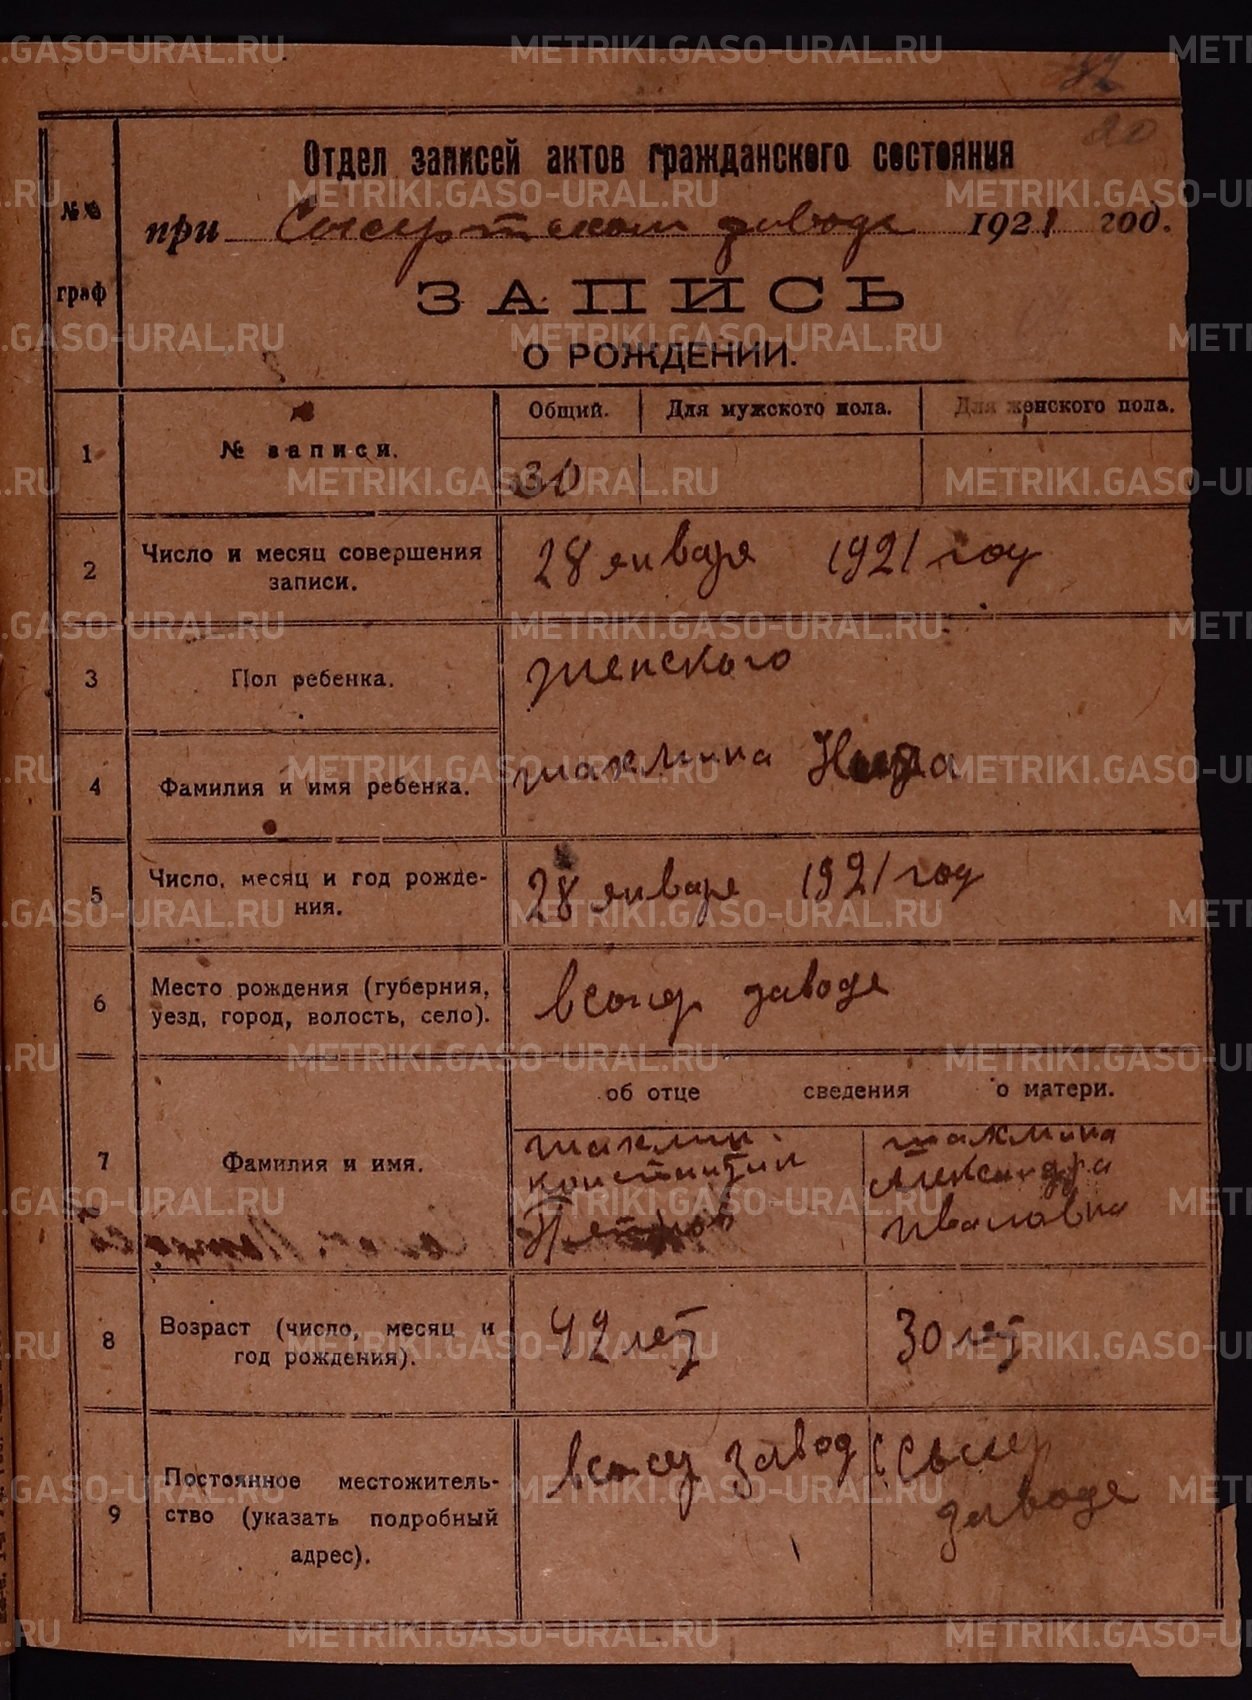 20
Отдел записей актов гражданского состояния
№№ граф
при Сысертском заводе 1921 год.
ЗАПИСЬ
О РОЖДЕНИИ.
1 № записи. Общий. Для мужского пола. Для женского пола.
30
2 Число и месяц совершения записи. 28 января 1921 году
3 Пол ребенка. женского
4 Фамилия и имя ребенка. шахмина
5 Число, месяц и год рождения. 28 января 1921 год
6 Место рождения (губерния, уезд, город, волость, село). в сысер заводе
об отце сведения о матери.
7 Фамилия и имя.
шахмин. шахмина
константин Александра
Петров ивановна
8 Возраст (число, месяц и год рождения). 42 лет 30 лет
9 Постоянное местожительство (указать подробный адрес). в сысер завод сысер заводе
METRIKI.GASO-URAL.RU